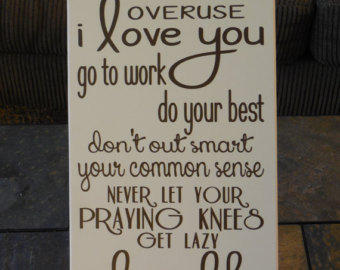 OVERUSE
i love you
go to work
do your best
don't out smart
your common sense
NEVER LET YOUR
PRAYING KNEES
GET LAZY